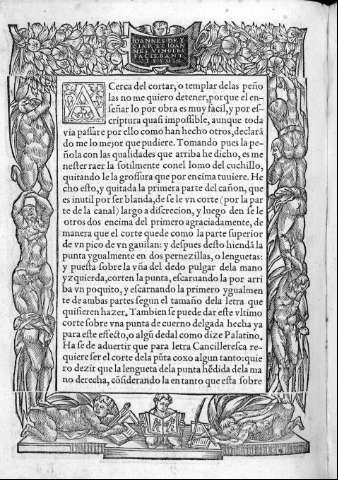 IOANNES DE Y
CIAR ET IOAN
NES VINGLES
FACIEBANT
A Cerca del cortar, o templar delas peño
las no me quiero detener, porque el en-
señar lo por obra es muy facil, y por es-
criptura quasi impossible, aunque toda
via passare por ello como han hecho otros, declarã
do me lo mejor que pudiere. Tomando pues la pe-
ñola con las qualidades que arriba he dicho, es me
nester raer la sotilmente conel lomo del cuchillo,
quitando le la grossura que por encima tuuiere. He
cho esto, y quitada la primera parte del cañon, que
es inutil por ser blanda, de se le vn corte (por la par
te de la canal) largo a discrecion, y luego den se le
otros dos encima del primero agraciadamente, de
manera que el corte quede como la parte superior
de vn pico de vn gauilan: y despues desto hiendã la
punta ygualmente en dos pernezillas, o lenguetas:
y puesta sobre la vña del dedo pulgar dela mano
yzquierda, corten la punta, escaruando la por arri
ba vn poquito, y escarnando la primero ygualmen
te de ambas partes segun el tamaño dela letra que
quisieren hazer. Tambien se puede dar este vltimo
corte sobre vna punta de cuerno delgada hecha ya
para este effecto, o algũ dedal como dize Palatino.
Ha se de aduertir que para letra Cancilleresca re-
quiere ser el corte dela pũta coxo algun tanto: quie
ro dezir que la lengueta dela punta hẽdida dela ma
no derecha, cõsiderando la en tanto que esta sobre